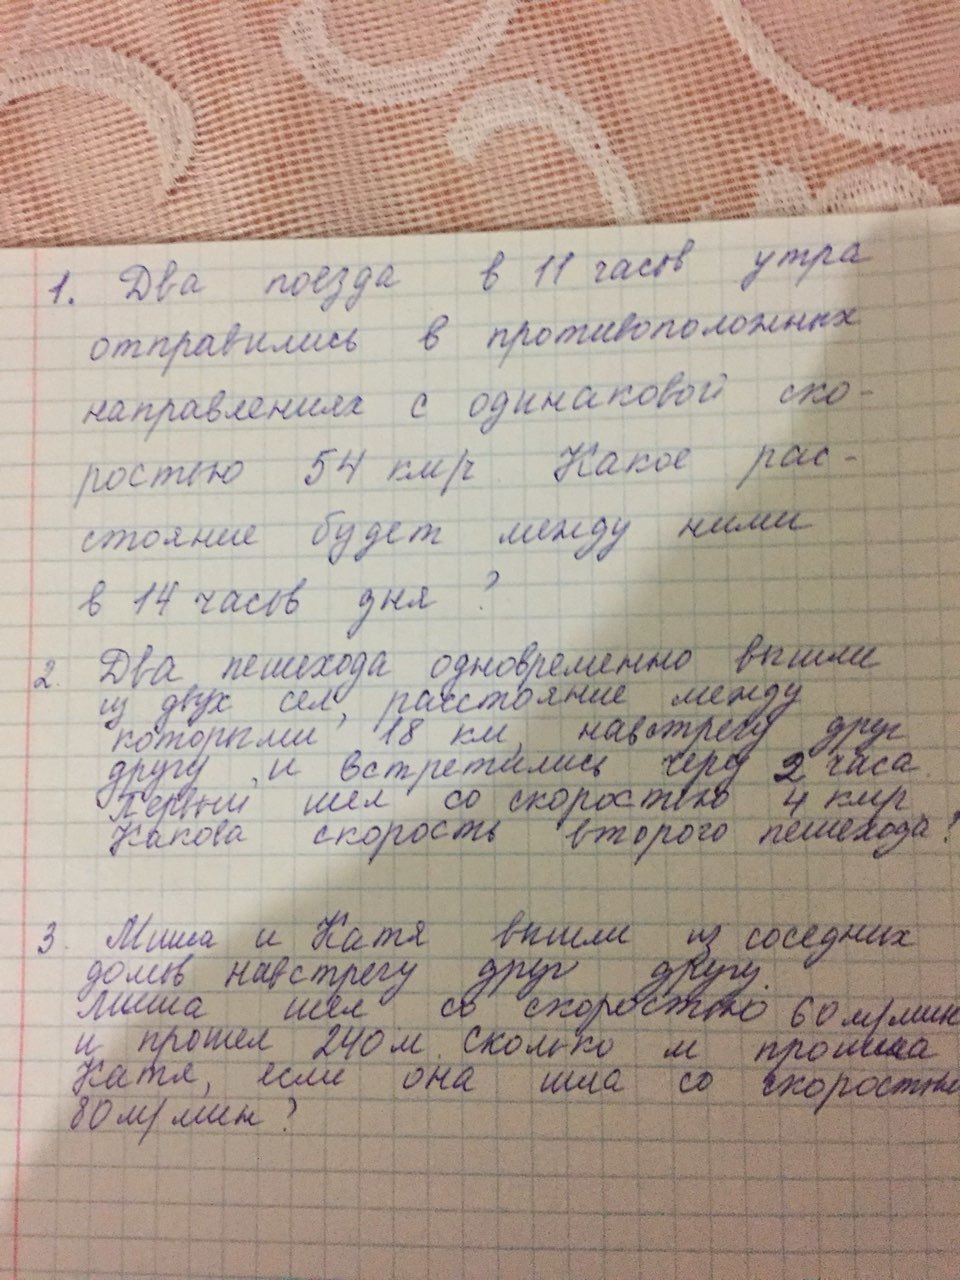 1. Два поезда в 11 часов утра
отправились в противоположных
направлениях с одинаковой ско-
ростью 54 км/ч Какое рас-
стояние будет между ними
в 14 часов дня ?
2. Два пешехода одновременно вышли
из двух сел, расстояние между
которыми 18 км, навстречу друг
другу и встретились через 2 часа.
Первый шел со скоростью 4 км/ч
Какова скорость второго пешехода?
3. Миша и Катя вышли из соседних
домов навстречу друг другу.
Миша шел со скоростью 60 м/мин
и прошел 240 м. Сколько м прошла
Катя, если она шла со скоростью
80 м/мин?